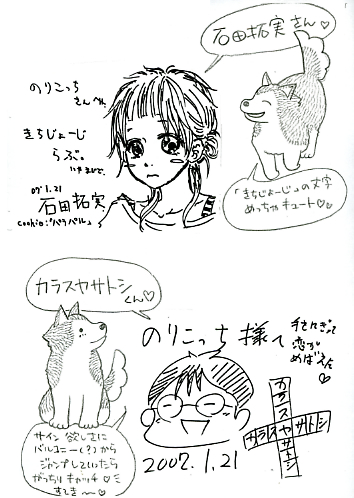 石田拓実さん♡
のりこっち
さんへ。
きちじょーじ
らぶ。
07.1.21
石田拓実
cookie:「パラパル」
「きちじょーじ」の文字
めっちゃキュート♡
カラスヤサトシ
くん♡
のりこっち様へ
手さにぎって
恋が
めばえた
カラスヤサトシ
カラスヤサトシ
2007.1.21
サイン欲しさに
バルコニー(?)から
ジャンプしていたら
がっちりキャッチ♡ミ
すてき〜♡